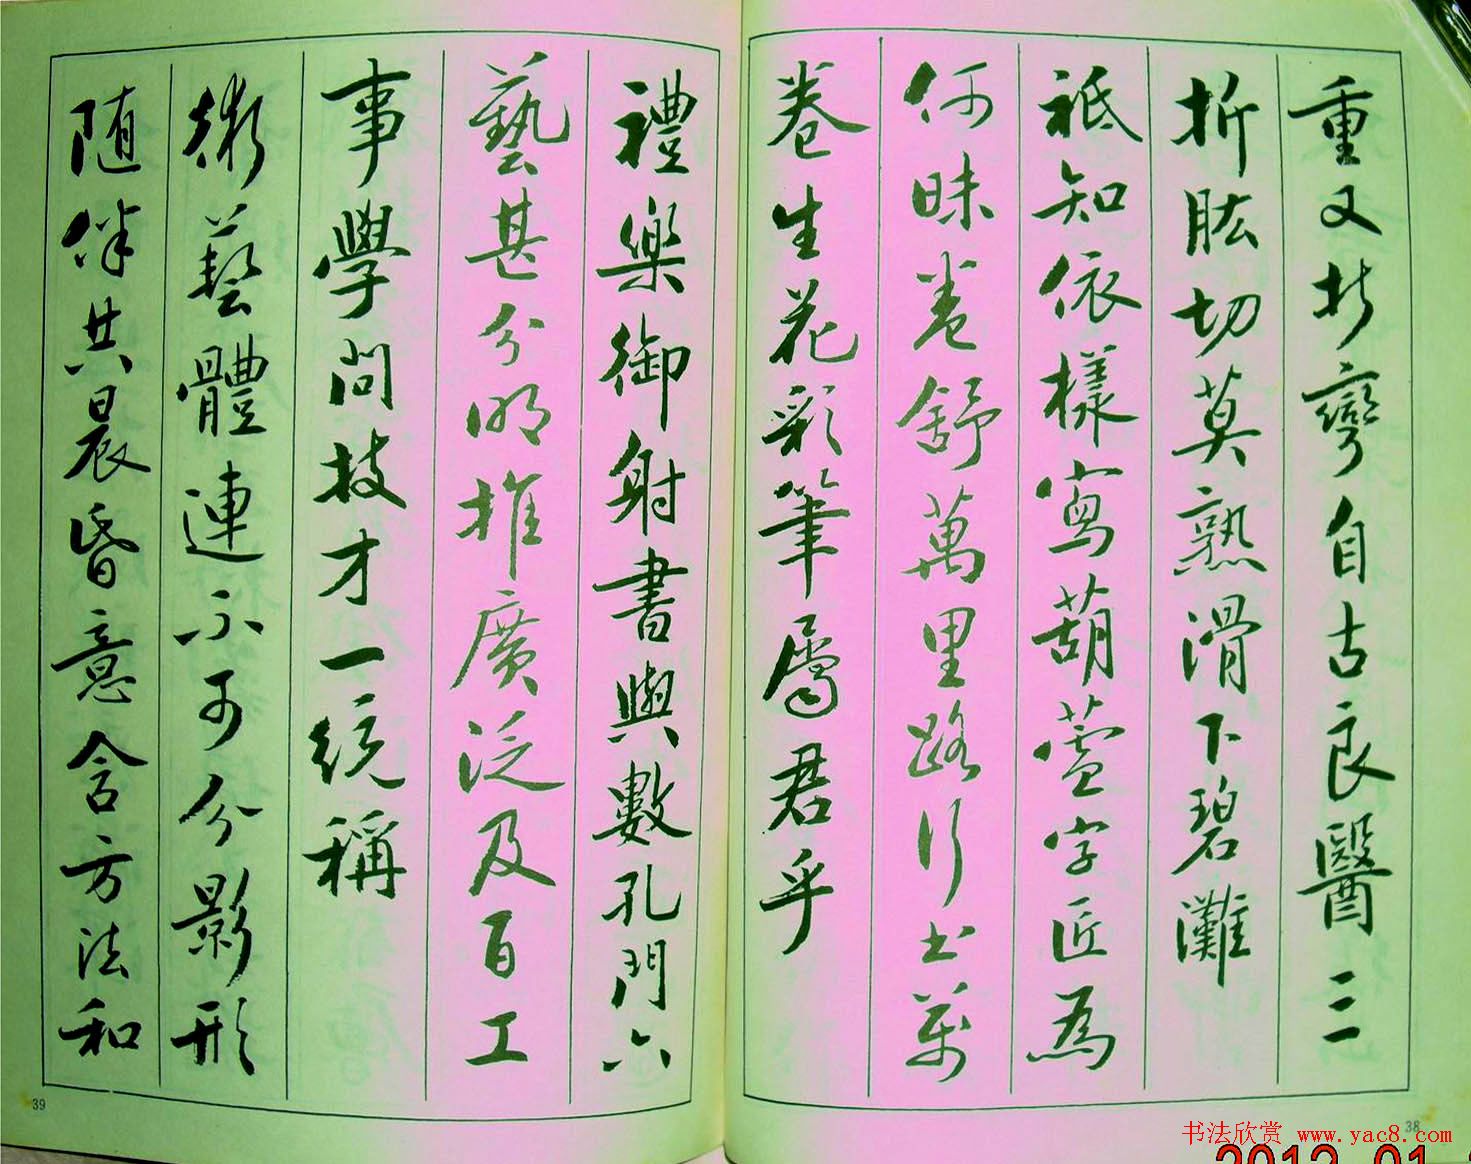 重又折彎自古良醫三
折肱切莫熟滑下碧灘
祇知依樣寫葫蘆字匠為
何昧卷舒萬里路行書萬
卷生花彩筆屬君乎
禮樂御射書與數孔門六
藝甚分明推廣泛及百工
事學問技才一統稱
術藝體連不可分影形
随伴共晨昏意含方法和
39
38
书法欣赏 www.yac8.com